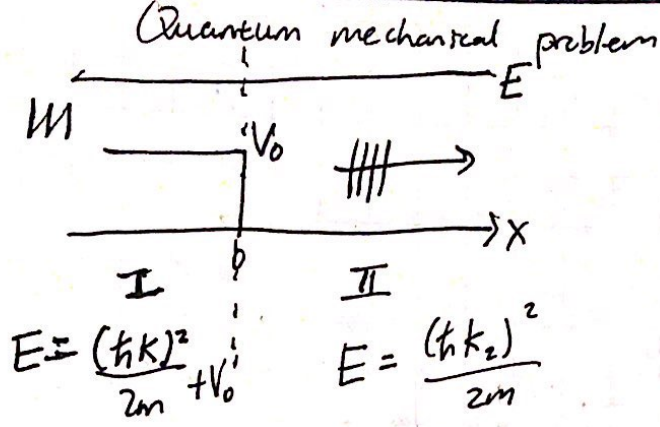 Quantum mechanical problem
E
V₀
x
0
I
II
E = (ħk)²/2m + V₀
E = (ħk₂)²/2m